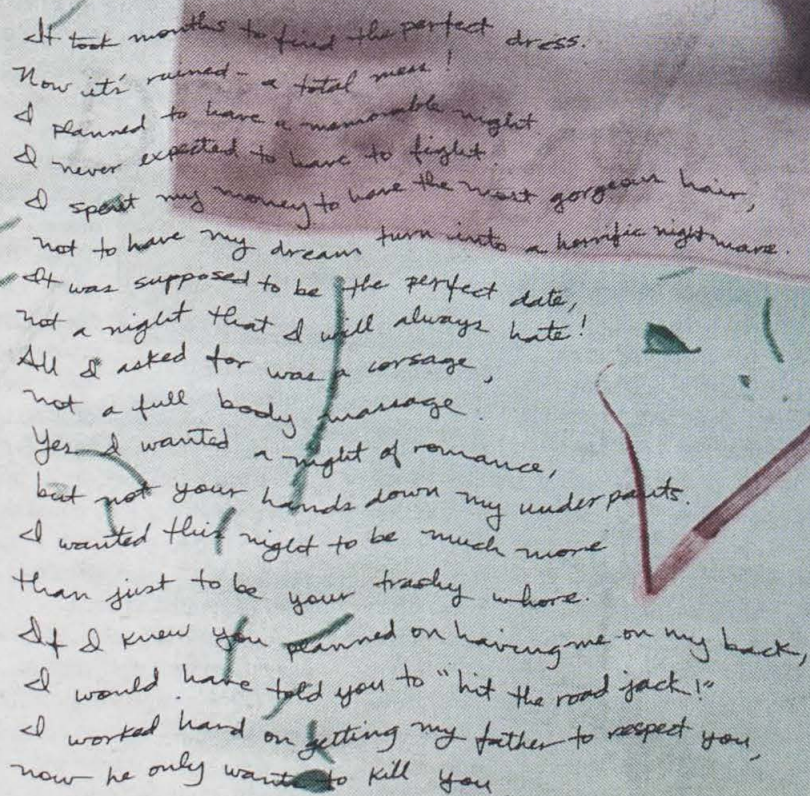 It took months to find the perfect dress.
Now it's ruined - a total mess!
I planned to have a memorable night.
I never expected to have to fight.
I spent my money to have the most gorgeous hair,
not to have my dream turn into a horrific nightmare.
It was supposed to be the perfect date,
not a night that I will always hate!
All I asked for was a corsage,
not a full body massage.
Yes I wanted a night of romance,
but not your hands down my underpants.
I wanted this night to be much more
than just to be your trashy whore.
If I knew you planned on having me on my back,
I would have told you to "hit the road jack!"
I worked hard on getting my father to respect you,
now he only wants to kill you